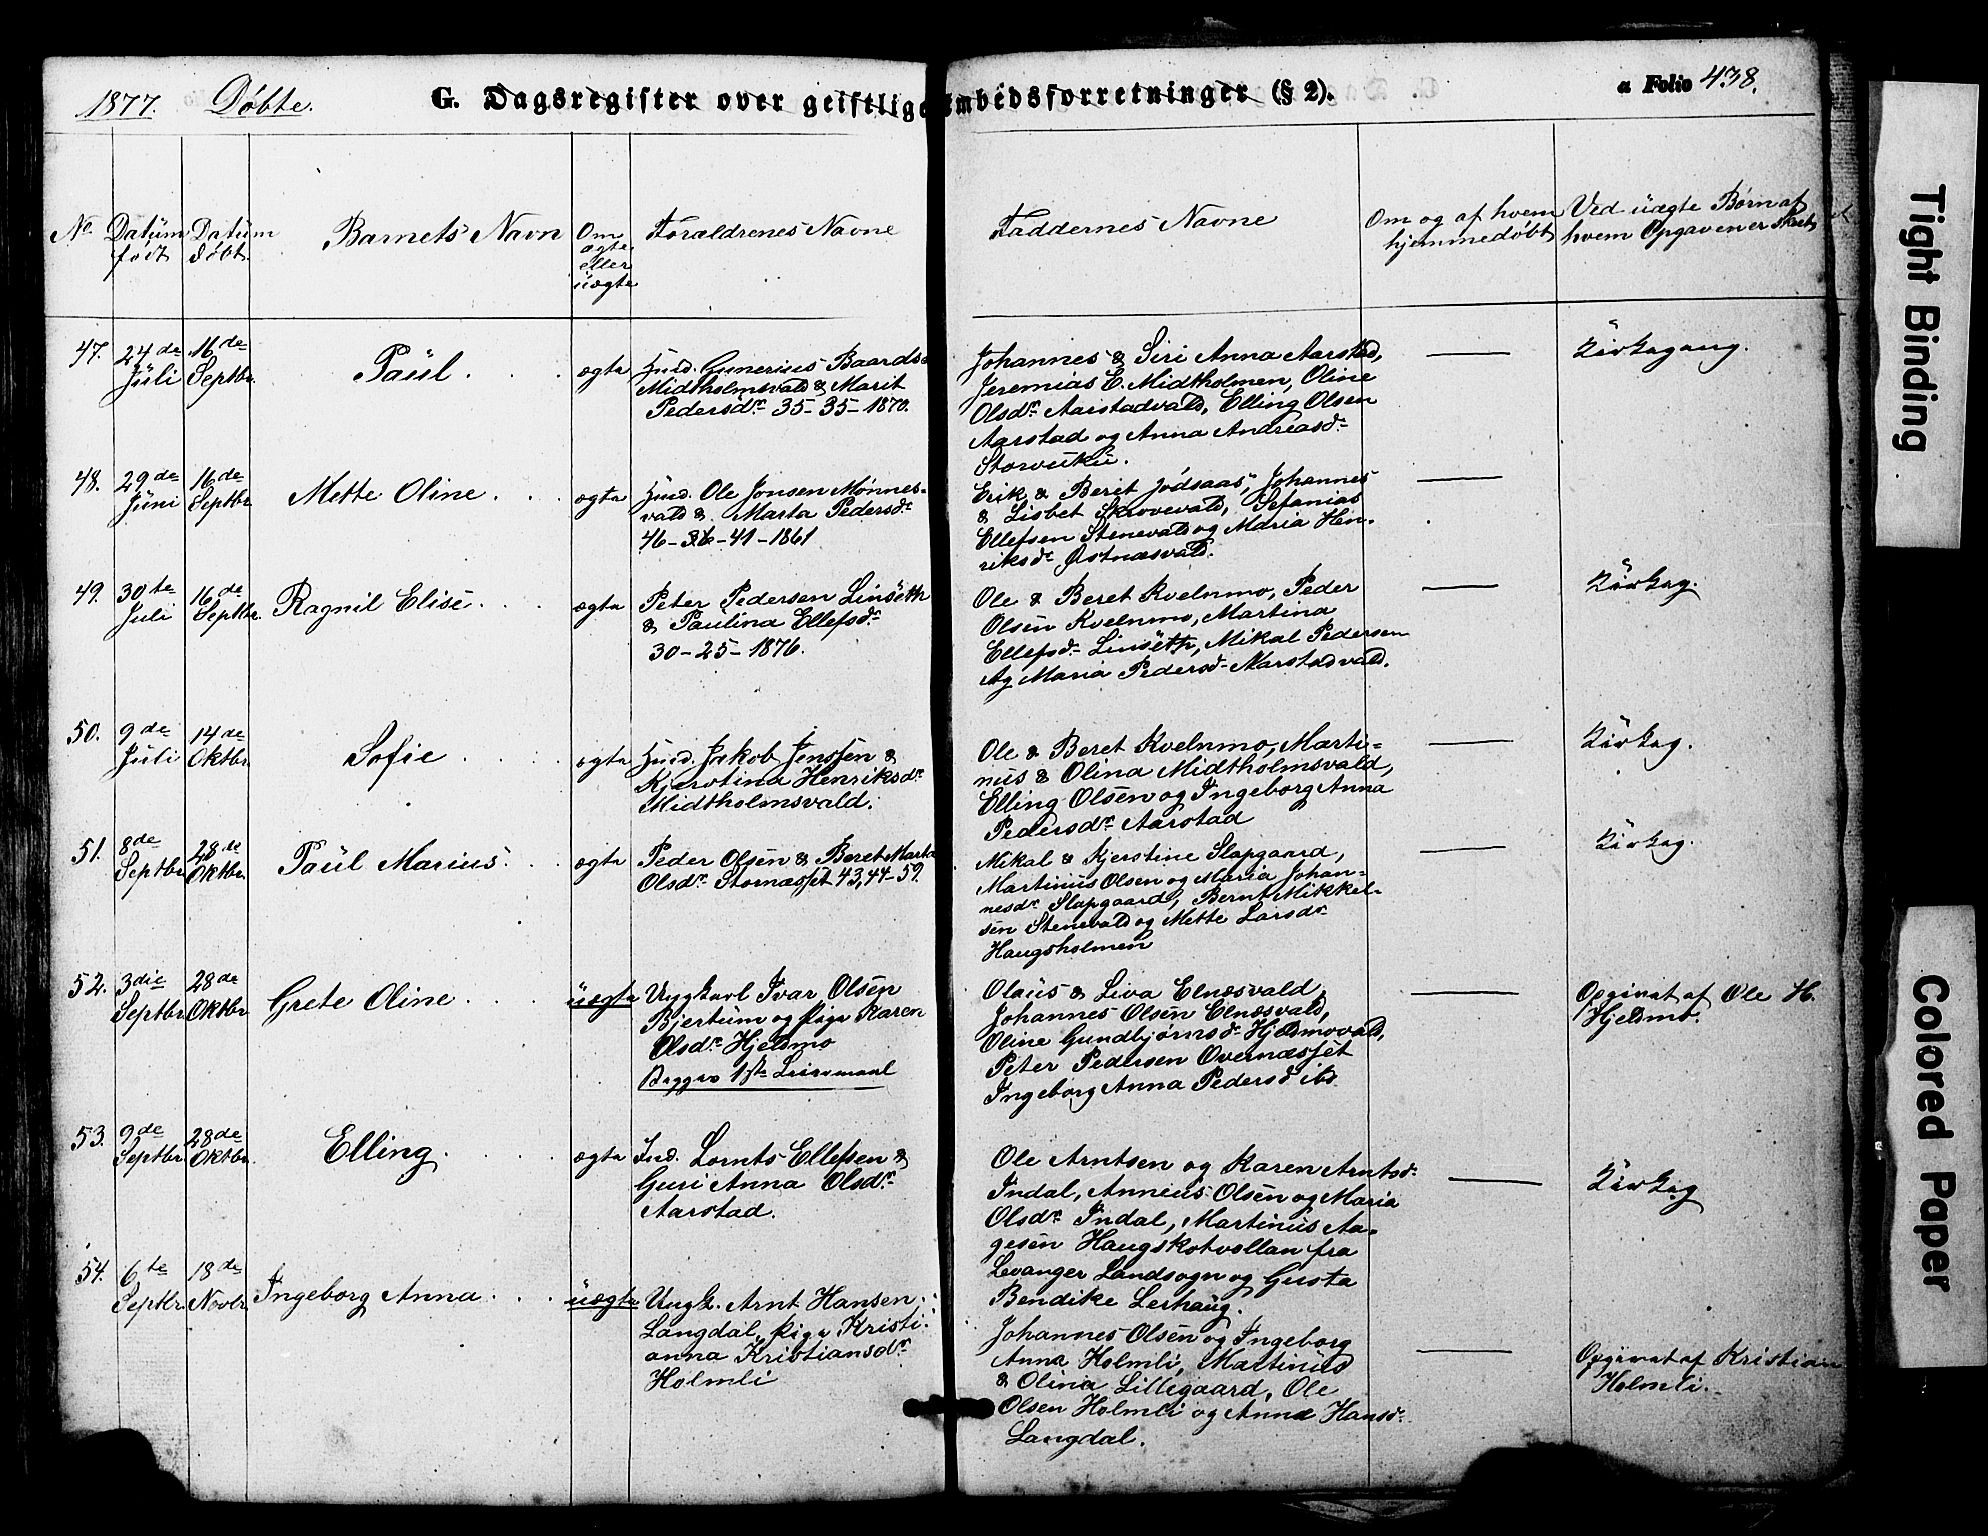 1877. Døbte. G. Dagsregister over geistlige Embedsforretninger (§ 2). a Folio 438.
No. Datum født Datum døbt. Barnets Navn Om ægte eller uægte Forældrenes Navne Faddernes Navne Om og af hvem hjemmedøbt Ved uægte Børn af hvem Opgaven er skeet
47. 24de Juli 16de Septbr. Paul . . . ægte Gunerius Baards.
Midtholmsvald & Marit
Pedersdr 35-35-1870.
Johannes & Siri Anna Aarstad,
Jeremias E. Midtholmen, Oline
Olsdr. Aarstadvald, Elling Olsen
Aarstad og Anna Andreasd.
Storvuku.
— Kirkegang.
48. 29de Juni 16de Septbr. Mette Oline . . . ægte Ole Jonsen Mønnes-
vald & Marta Pedersdr
46-36-41-1861
Erik & Beret Jødsaas, Johannes
& Lisbet Skrovevald, Sefanias
Ellefsen Stenevald og Maria Hen-
riksdr Østnæsvald.
—
49. 30te Juli 16de Septbr. Ragnil Elise . . . ægte Peter Pedersen Linseth
& Paulina Ellefsdr
30-25-1876.
Ole & Beret Kvelnmo, Peder
Olsen Kvelnmo, Martina
Ellefsdr Linseth, Mikal Pedersen
og Maria Pedersd. Aarstadvald.
— Kirkeg.
50. 9de Juli 14de Oktbr. Sofie . . . ægte Jakob Jenssen &
Kjerstina Henriksdr
Midtholmsvald.
Ole & Beret Kvelnmo, Marti-
nus & Olina Midtholmsvald,
Elling Olsen og Ingeborg Anna
Pedersdr Aarstad
— Kirkeg.
51. 8de Septbr. 28de Oktbr. Paul Marius . . ægte Peder Olsen & Beret Marta
Olsdr. Stornæsset 43,44-59.
Mikal & Kjerstine Slapgaard,
Martinus Olsen og Maria Johan-
nesdr Slapgaard, Bernt Mikkel-
sen Stenevald og Mette Larsdr
Haugsholmen
— Kirkeg.
52. 3die Septbr. 28de Oktbr. Grete Oline . . . uægte Ungkarl Ivar Olsen
Bjertum og Pige Karen
Olsdr. Hjeldmo
Begges 1ste Leiermaal
Olaus & Liva Elnæsvald,
Johannes Olsen Elnæsvald,
Oline Gundbjørnsd. Hjeldmovald,
Peter Pedersen Overnæsset
Ingeborg Anna Pedersd ibd
— Opgivet af Ole H.
Hjeldmo.
53. 9de Septbr. 28de Oktbr. Elling . . . ægte Ind. Lornts Ellefsen &
Guri Anna Olsdr.
Aarstad.
Ole Arntsen og Karen Arntsd.
Indal, Annæus Olsen og Maria
Olsdr Indal, Martinus Aa-
gesen Haugskotvollan fra
Levanger Landsogn og Gusta
Bendike Lerhaug.
— Kirkeg
54. 6te Septbr. 18de Novbr. Ingeborg Anna . . . uægte Ungk. Arnt Hansen
Langdal, Pige Kristi-
anna Kristiansdr
Holmli
Johannes Olsen og Ingeborg
Anna Holmli, Martinus
& Olina Lillegaard, Ole
Olsen Holmli og Anna Hansd.
Langdal.
— Opgivet af Kristian
Holmli.
Tight Binding
Colored Paper